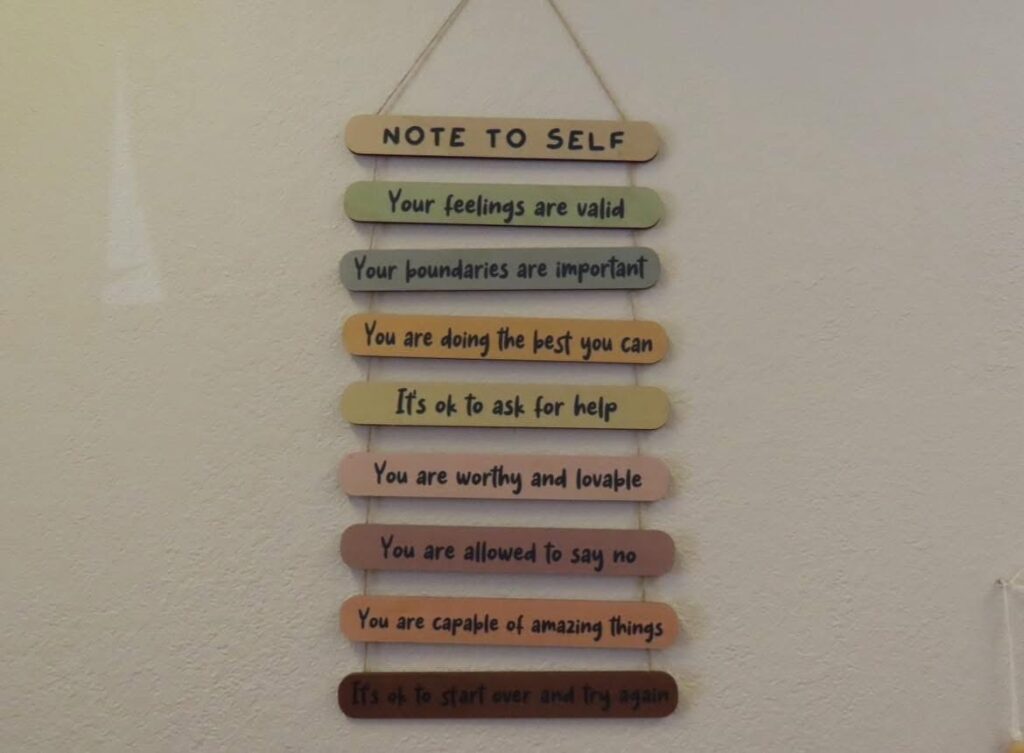 NOTE TO SELF
Your feelings are valid
Your boundaries are important
You are doing the best you can
It's ok to ask for help
You are worthy and lovable
You are allowed to say no
You are capable of amazing things
It's ok to start over and try again